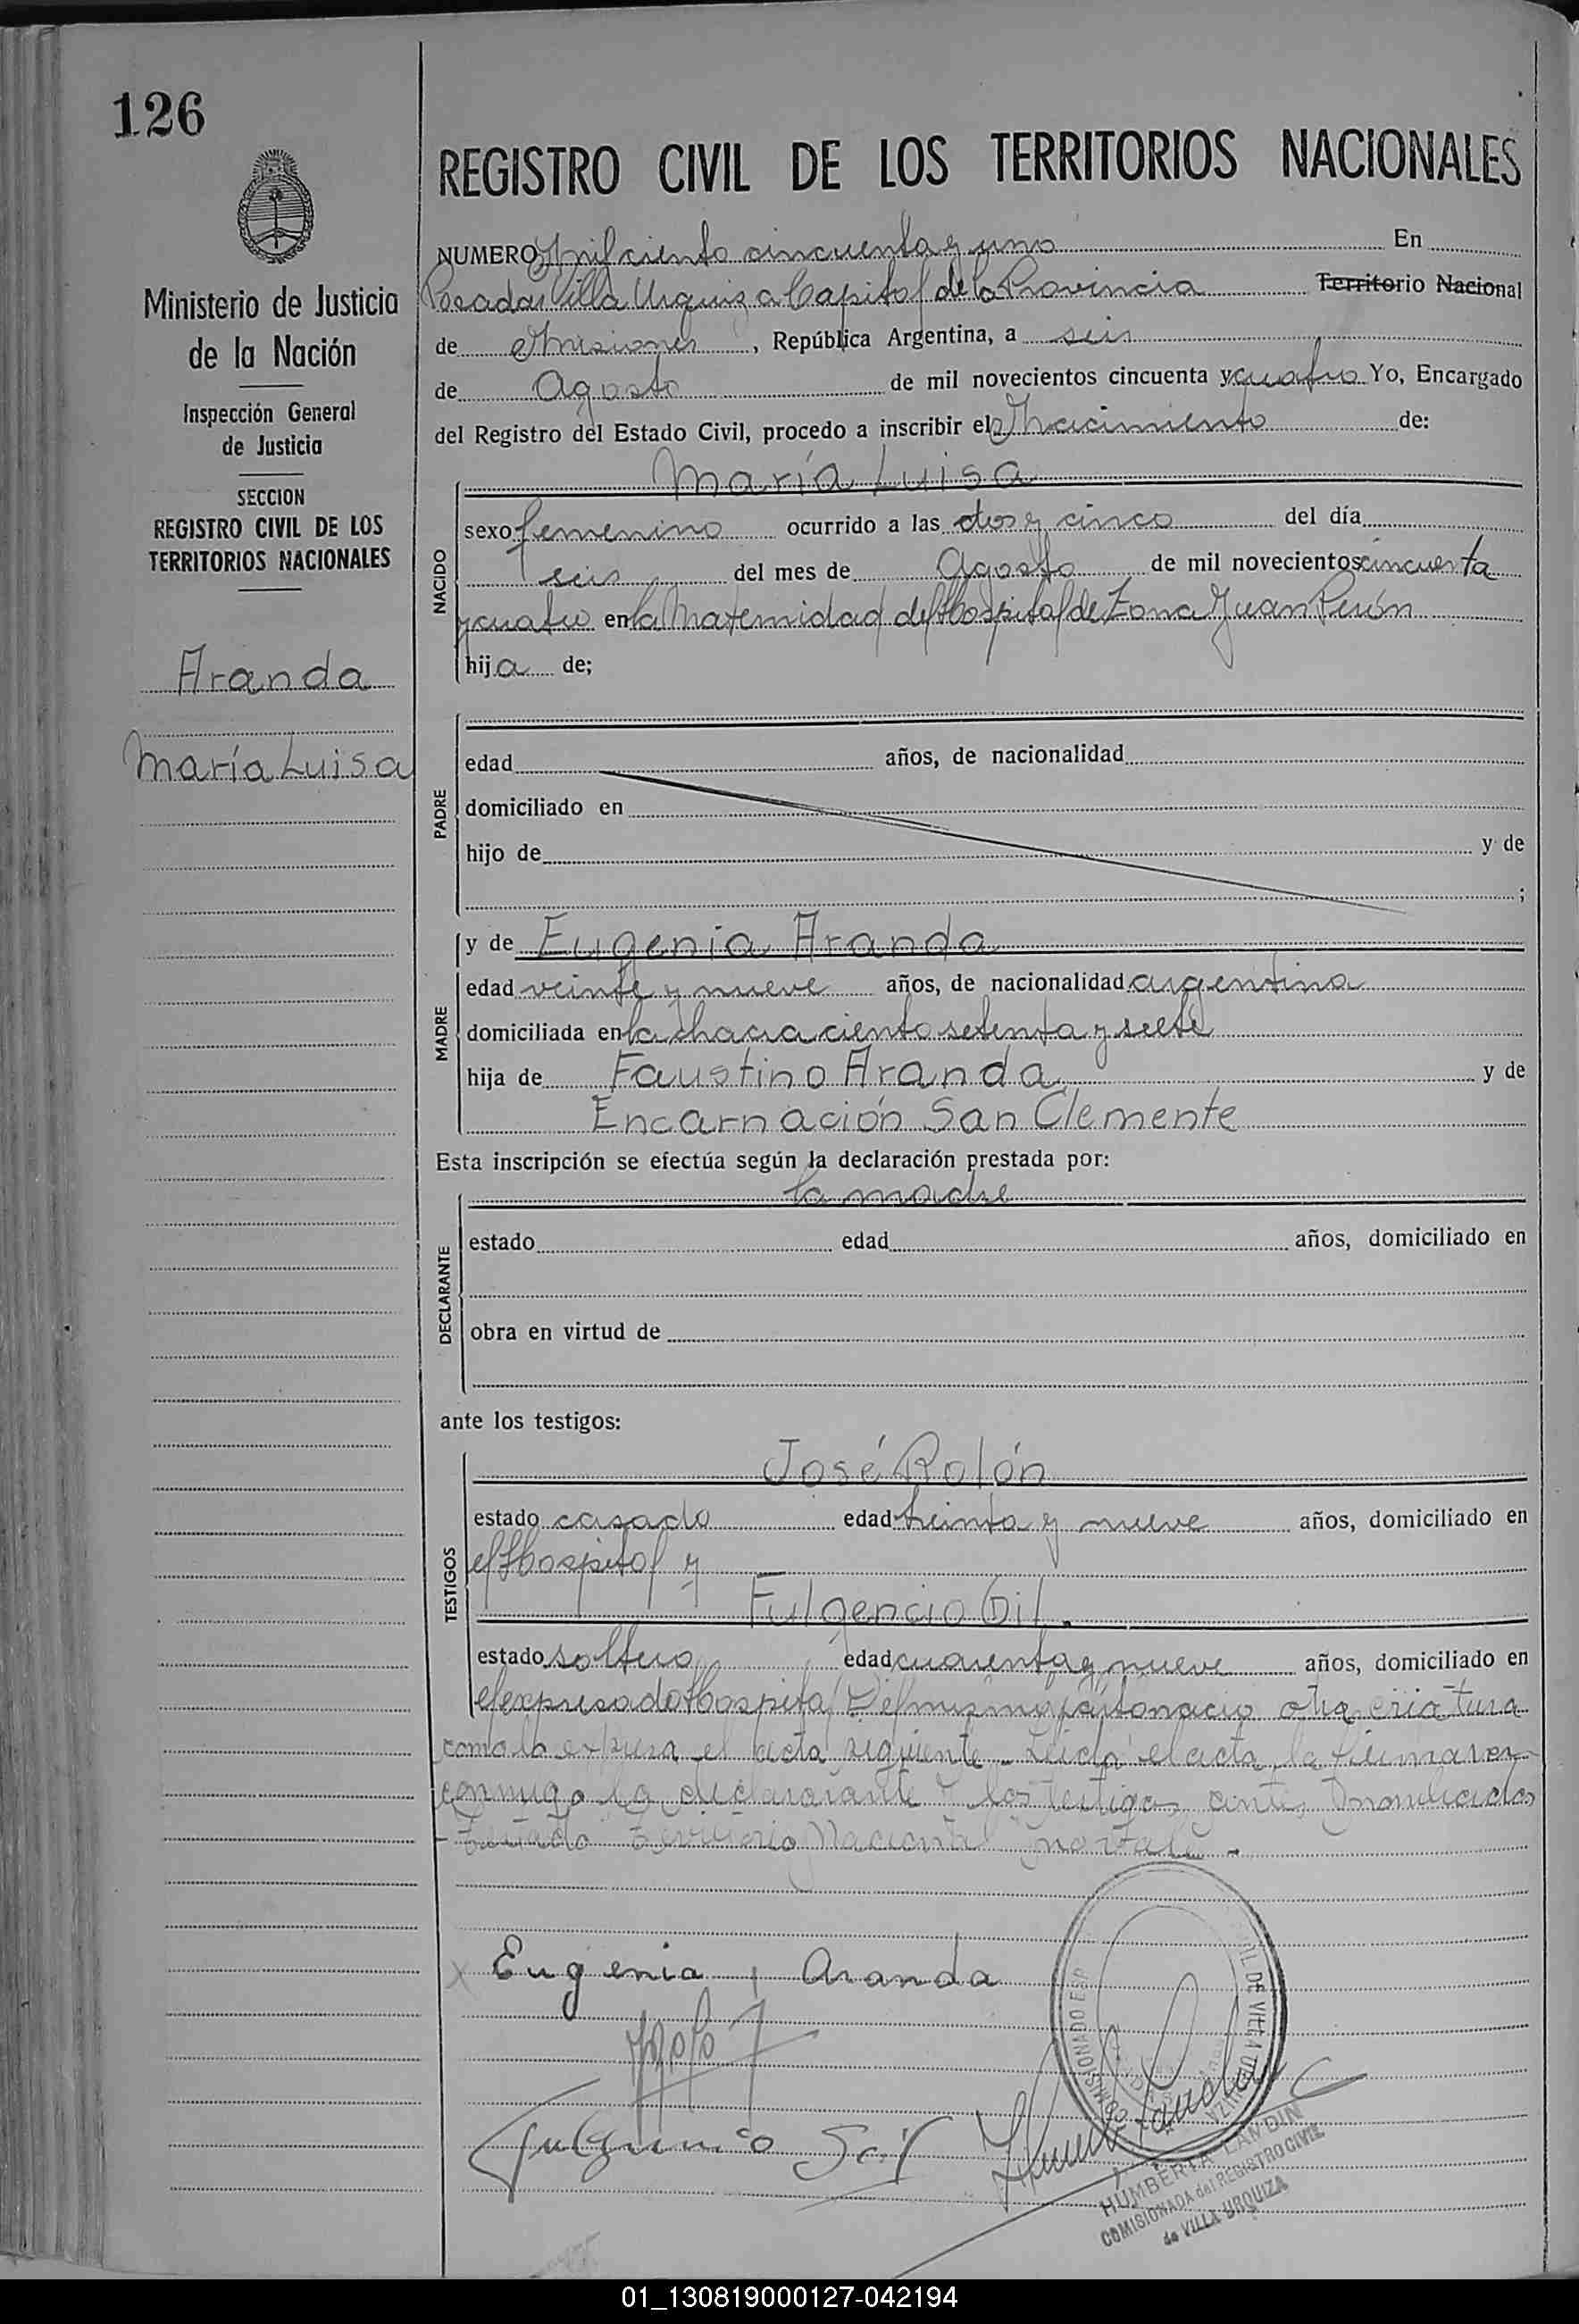 126
REGISTRO CIVIL DE LOS TERRITORIOS NACIONALES
Ministerio de Justicia
de la Nación
Inspección General
de Justicia
SECCION
REGISTRO CIVIL DE LOS
TERRITORIOS NACIONALES
Aranda
María Luisa
NUMERO Mil ciento cincuenta y uno En
Posadas Villa Urquiza Capital de la Provincia Territorio Nacional
de Misiones, República Argentina, a seis
de Agosto de mil novecientos cincuenta y cuatro Yo, Encargado
del Registro del Estado Civil, procedo a inscribir el Nacimiento de:
NACIDO
María Luisa
sexo femenino ocurrido a las dos y cinco del día
seis del mes de Agosto de mil novecientos cincuenta
y cuatro en la Maternidad del Hospital de Zona Juan Perón
hija de;
PADRE
edad años, de nacionalidad
domiciliado en
hijo de y de
;
MADRE
y de Eugenia Aranda
edad veinte y nueve años, de nacionalidad argentina
domiciliada en la chacra ciento setenta y siete
hija de Faustino Aranda y de
Encarnación San Clemente
Esta inscripción se efectúa según la declaración prestada por:
DECLARANTE
la madre
estado edad años, domiciliado en
obra en virtud de
ante los testigos:
TESTIGOS
José Rolón
estado casado edad treinta y nueve años, domiciliado en
el Hospital y
Fulgencio Gil.
estado soltero edad cuarenta y nueve años, domiciliado en
el expresado Hospital Del mismo parto nació otra criatura
como lo expresa el acta siguiente. Leida el acta, la firmaron
conmigo la declarante y los testigos antes nombrados
- Testado Territorio Nacional no vale. -
Eugenia Aranda
Fulgencio Gil
HUMBERTA LANDIN
COMISIONADA del REGISTRO CIVIL
de VILLA URQUIZA
01_130819000127-042194